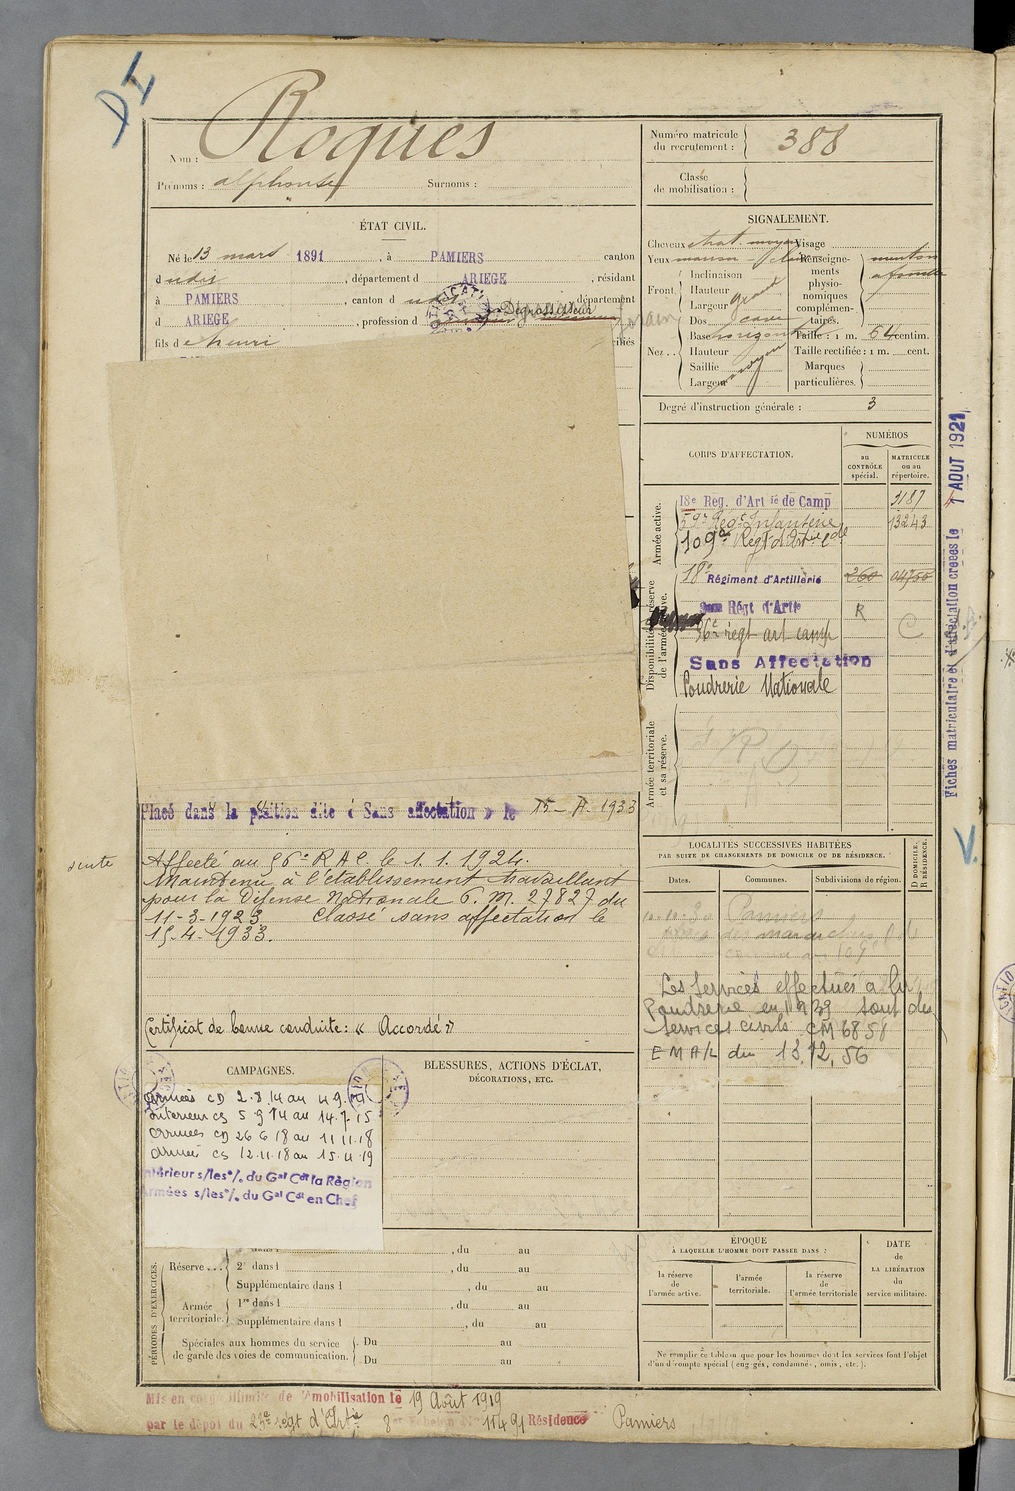 DI
Nom : Roques
Prénoms : alphonse Surnoms :
Numéro matricule
du recrutement : 388
Classe
de mobilisation :
ÉTAT CIVIL.
Né le 13 mars 1891, à PAMIERS canton
d udit, département d ARIEGE, résidant
à PAMIERS, canton d udit, département
d ARIEGE, profession d Dégrossisseur
fils d e henri
SIGNALEMENT.
Cheveux chat. moyen Visage
Yeux marron
Front. Inclinaison
Hauteur grand
Largeur
Nez .. Dos cave
Base horizontale
Hauteur moyen
Saillie
Largeur
Renseigne-
ments
physio-
nomiques
complémen-
taires.
menton
à fossette
Taille : 1 m. 64 centim.
Taille rectifiée : 1 m. cent.
Marques
particulières.
Degré d'instruction générale : 3
CORPS D'AFFECTATION.
NUMÉROS
au
CONTRÔLE
spécial.
MATRICULE
ou au
répertoire.
Armée active.
18e Reg. d'Art ie de Camp 3187
59e Regt Infanterie 13243
109e Regt d'Artie Lde
Disponibilité et réserve
de l'armée active.
18e Régiment d'Artillerie 260
Régt d'Artie R
56e régt art camp C
Sans Affectation
Poudrerie Nationale
Armée territoriale
et sa réserve.
Fiches matriculaire et d'affectation créées le 1 AOUT 1921
Placé dans la position dite « Sans affectation » le 15-4-1933
suite
Affecté au 56e RAC. le 1.1.1924.
Maintenu à l'établissement travaillant
pour la Défense Nationale C.M. 27827 du
11-3-1923 Classé sans affectation le
15-4-1933.
Certificat de bonne conduite : « Accordé »
LOCALITÉS SUCCESSIVES HABITÉES
PAR SUITE DE CHANGEMENTS DE DOMICILE OU DE RÉSIDENCE.
Dates. Communes. Subdivisions de région. D DOMICILE. R RÉSIDENCE.
Pamiers
Les services effectués à la
Poudrerie en 1939 sont des
services civils CM 6858
EMA/L du 13.12.56
V.
CAMPAGNES.
Armées CD 2.8.14 au 4.9.14
Intérieur CS 5 9 14 au 14.7.15
Armées CD 26 6 18 au 11 11.18
Armée CS 12.11.18 au 15.4.19
Intérieur s/les o/. du Gal Cdt la Région
Armées s/les o/. du Gal Cdt en Chef
BLESSURES, ACTIONS D'ÉCLAT,
DÉCORATIONS, ETC.
PÉRIODES D'EXERCICES.
dans l , du au
Réserve ... 2e dans l , du au
Supplémentaire dans l , du au
Armée
territoriale.
1re dans l , du au
Supplémentaire dans l , du au
Spéciales aux hommes du service
de garde des voies de communication.
Du au
Du au
ÉPOQUE
À LAQUELLE L'HOMME DOIT PASSER DANS :
la réserve
de
l'armée active.
l'armée
territoriale.
la réserve
de
l'armée territoriale
DATE
de
LA LIBÉRATION
du
service militaire.
Ne remplir ce tableau que pour les hommes dont les services font l'objet
d'un décompte spécial (engagés, condamnés, omis, etc.).
Mis en congé illimité de démobilisation le 19 Août 1919
par le dépôt du 23e regt d'Artie 8e Echelon No 11491 Résidence Pamiers